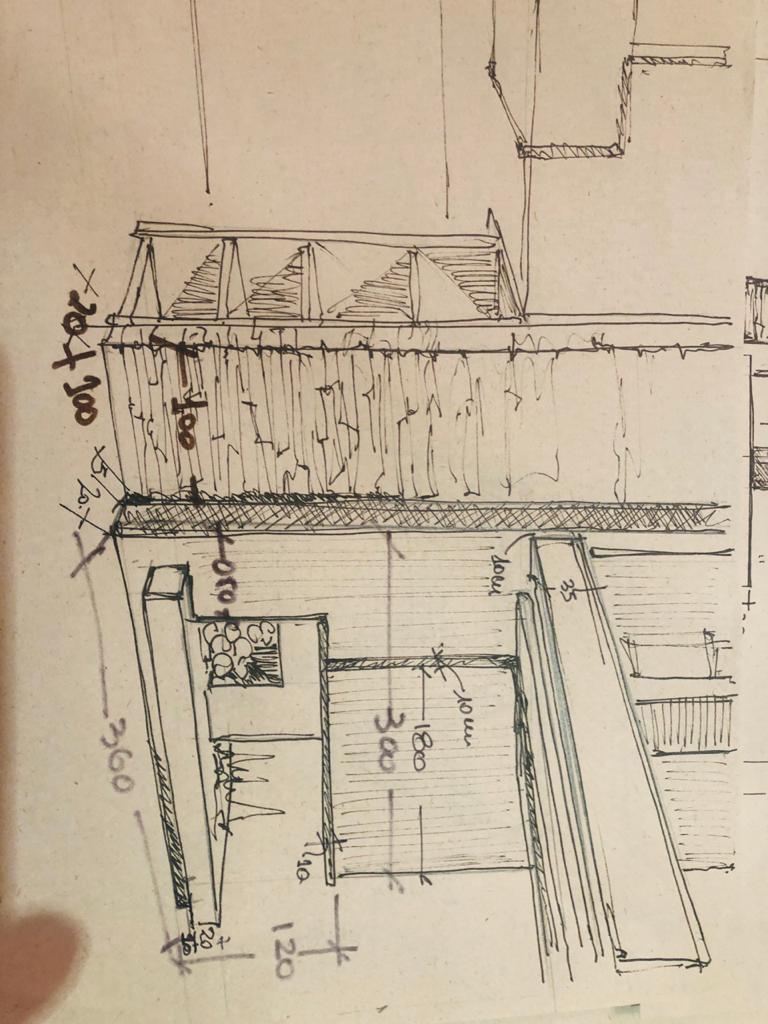 35
10cm
10cm
180
300
10
120
050
20
10
100
360
20
100
5
20